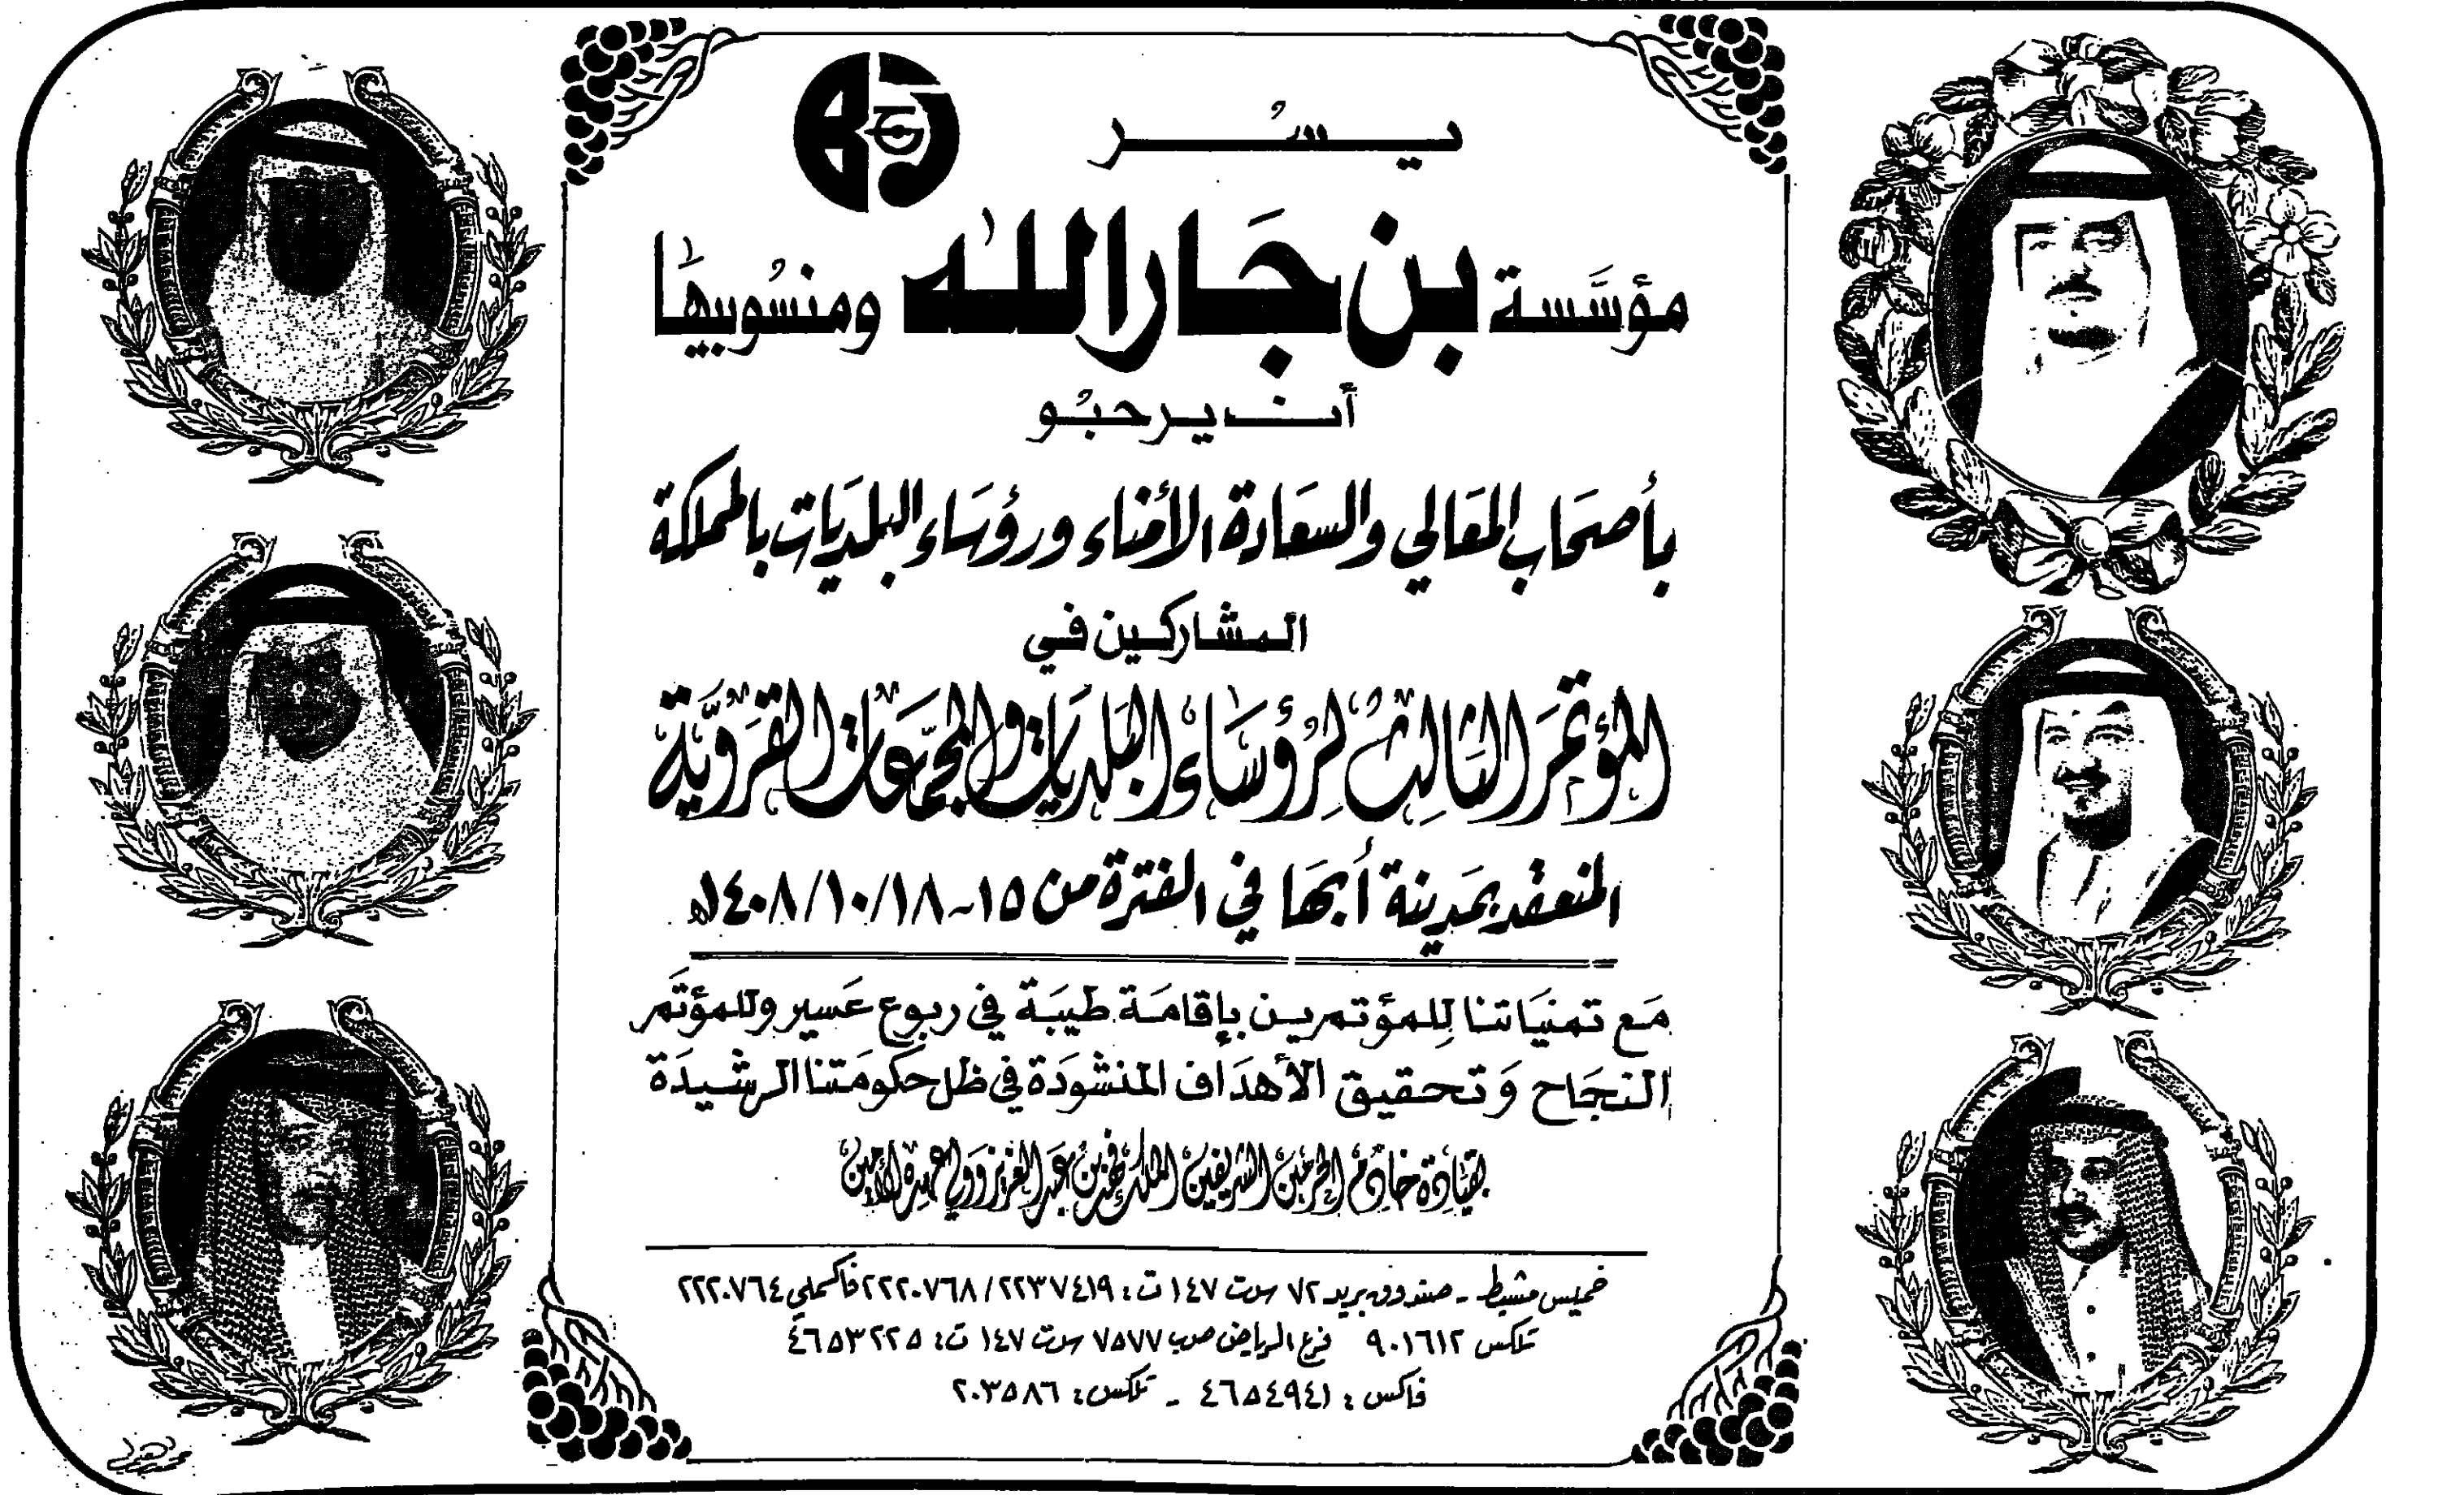 يسر
مؤسسة بن جار الله ومنسوبيها
أن يرحبو
بأصحاب المعالي والسعادة الأمناء ورؤساء البلديات بالمملكة
المشاركين في
المؤتمر الثالث لرؤساء البلديات والمجمعات القروية
المنعقد بمدينة أبها في الفترة من ١٥-١٤٠٨/١٠/١٨هـ
مع تمنياتنا للمؤتمرين بإقامة طيبة في ربوع عسير وللمؤتمر
النجاح وتحقيق الأهداف المنشودة في ظل حكومتنا الرشيدة
بقيادة خادم الحرمين الشريفين الملك فهد بن عبد العزيز وولي عهده الأمين
خميس مشيط - صندوق بريد ٧٢ س ت ١٤٧ ت: ٢٢٣٧٤١٩ / ٢٢٢٠٧٦٨ فاكسملي ٢٢٢٠٧٦٤
تلكس ٩٠١٦١٢ فرع الرياض ص ب ٧٥٧٧ س ت ١٤٧ ت: ٤٦٥٣٢٢٥
فاكس: ٤٦٥٤٩٤١ - تلكس: ٢٠٣٥٨٦